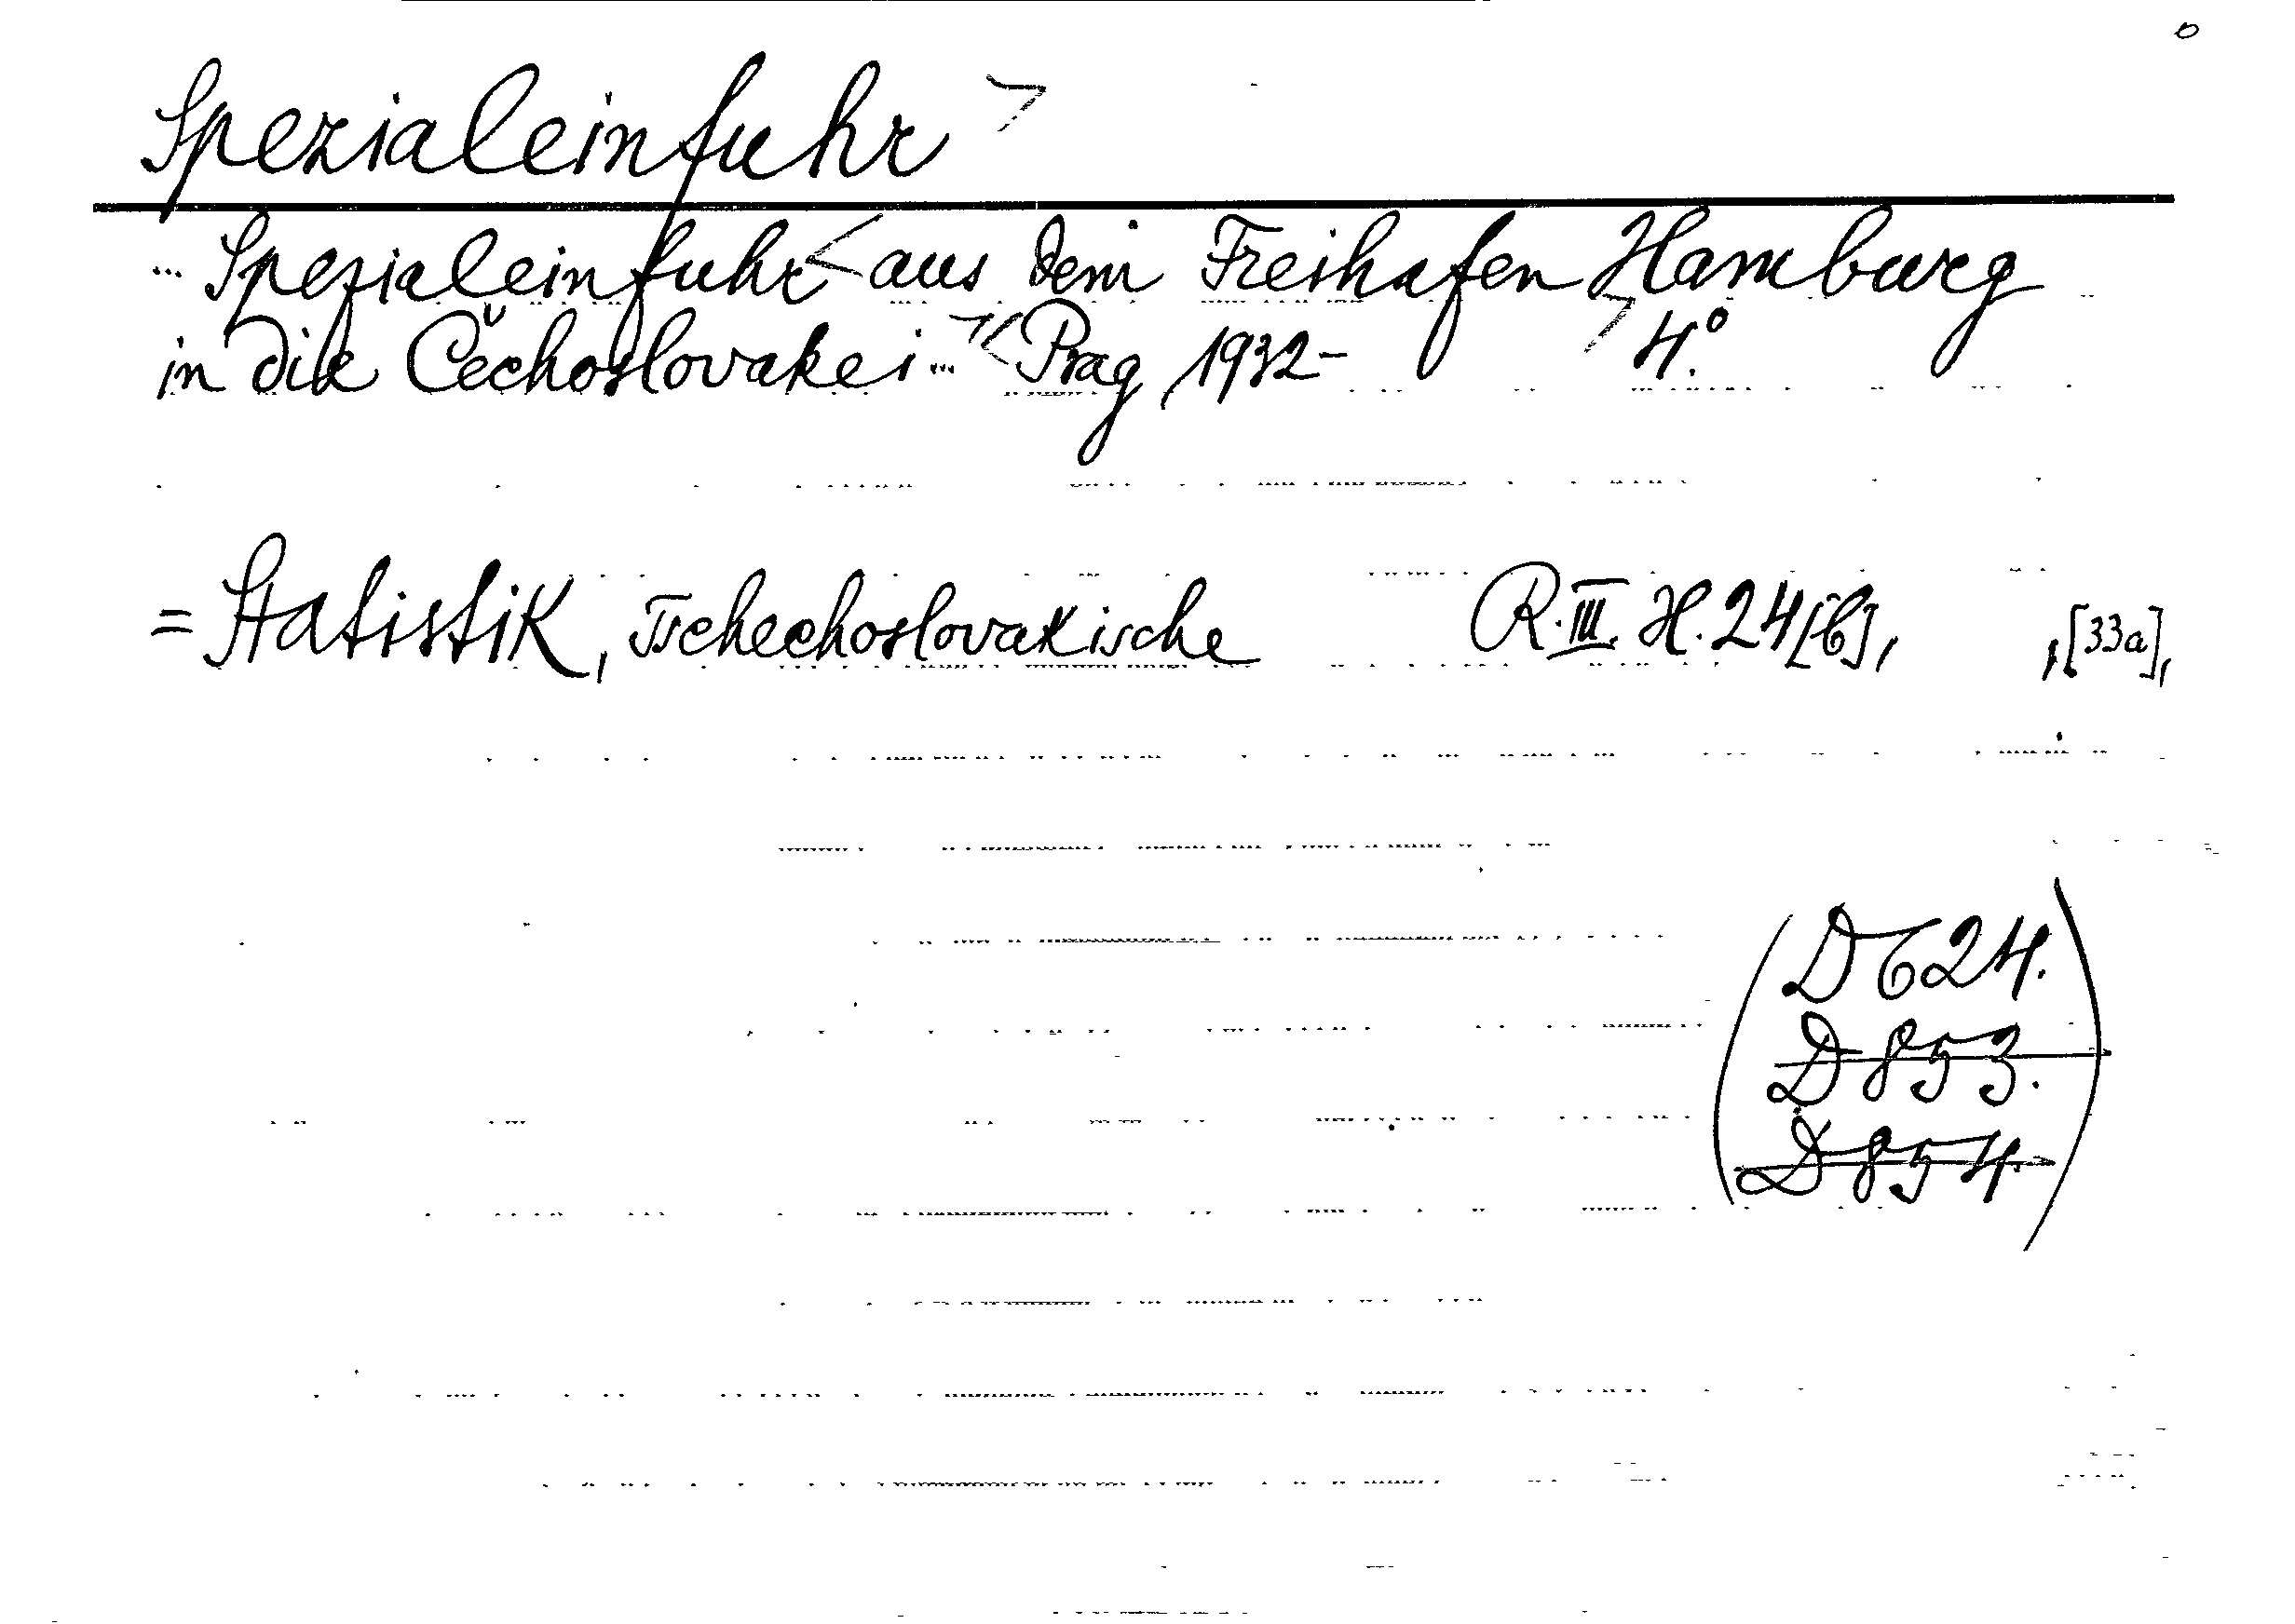 Spezialeinfuhr >
... Spezialeinfuhr < aus dem Freihafen Hamburg
in die Čechoslovakei ... > < Prag, 1932- > 4.º
= Statistik, Tschechoslovakische R.III. H. 24[b], ,[33a],
(D 624.
D 853.
D 854.)